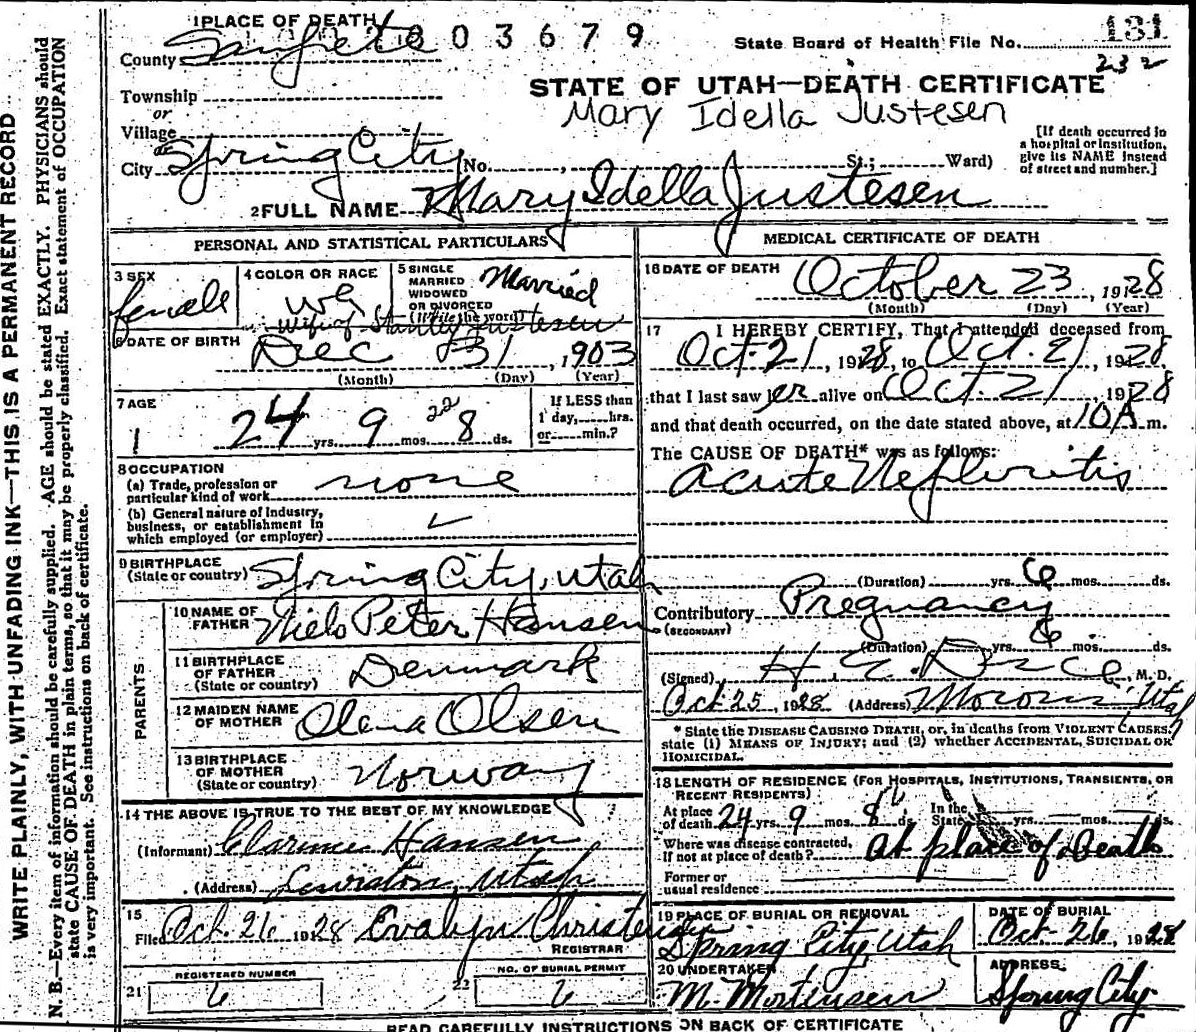 1 PLACE OF DEATH
2803679
State Board of Health File No. 131
232
County Sanpete
STATE OF UTAH—DEATH CERTIFICATE
Township
Mary Idella Justesen
or
Village
or
City Spring City No. St.; Ward)
[If death occurred in
a hospital or institution,
give its NAME instead
of street and number.]
2 FULL NAME Mary Idella Justesen
PERSONAL AND STATISTICAL PARTICULARS
3 SEX
female
4 COLOR OR RACE
5 SINGLE
MARRIED
WIDOWED
OR DIVORCED
(Write the word)
Married
Wife of Stanley Justesen
6 DATE OF BIRTH
Dec 31, 1903
(Month) (Day) (Year)
7 AGE
24 yrs. 9 mos. 22 8 ds.
If LESS than
1 day, hrs.
or min.?
8 OCCUPATION
(a) Trade, profession or
particular kind of work none
(b) General nature of industry,
business, or establishment in
which employed (or employer)
9 BIRTHPLACE
(State or country) Spring City, Utah
PARENTS
10 NAME OF
FATHER Niels Peter Hansen
11 BIRTHPLACE
OF FATHER
(State or country) Denmark
12 MAIDEN NAME
OF MOTHER Olena Olsen
13 BIRTHPLACE
OF MOTHER
(State or country) Norway
14 THE ABOVE IS TRUE TO THE BEST OF MY KNOWLEDGE
(Informant) Clarence Hansen
(Address) Lewiston, Utah
15
Filed Oct. 26 1928 Evalyn Christensen
REGISTRAR
REGISTERED NUMBER
21 6
NO. OF BURIAL PERMIT
22 6
MEDICAL CERTIFICATE OF DEATH
16 DATE OF DEATH
October 23, 1928
(Month) (Day) (Year)
17 I HEREBY CERTIFY, That I attended deceased from
Oct. 21, 1928, to Oct. 21, 1928
that I last saw her alive on Oct 21 1928
and that death occurred, on the date stated above, at 10 A m.
The CAUSE OF DEATH* was as follows:
Acute Nefhritis
(Duration) yrs. 6 mos. ds.
Contributory Pregnancy
(SECONDARY)
(Duration) yrs. 6 mos. ds.
(Signed) H. E. , M. D.
Oct 25, 1928 (Address) Moroni, Utah
* State the DISEASE CAUSING DEATH, or, in deaths from VIOLENT CAUSES,
state (1) MEANS OF INJURY; and (2) whether ACCIDENTAL, SUICIDAL OR
HOMICIDAL.
18 LENGTH OF RESIDENCE (FOR HOSPITALS, INSTITUTIONS, TRANSIENTS, OR
RECENT RESIDENTS)
At place
of death 24 yrs. 9 mos. 8 ds. In the
State yrs. mos. ds.
Where was disease contracted,
If not at place of death? At place of Death
Former or
usual residence
19 PLACE OF BURIAL OR REMOVAL
Spring City, Utah
DATE OF BURIAL
Oct 26, 1928
20 UNDERTAKER
M. Mortensen
ADDRESS
Spring City
READ CAREFULLY INSTRUCTIONS ON BACK OF CERTIFICATE
WRITE PLAINLY, WITH UNFADING INK—THIS IS A PERMANENT RECORD
N. B.—Every item of information should be carefully supplied. AGE should be stated EXACTLY. PHYSICIANS should
state CAUSE OF DEATH in plain terms, so that it may be properly classified. Exact statement of OCCUPATION
is very important. See instructions on back of certificate.